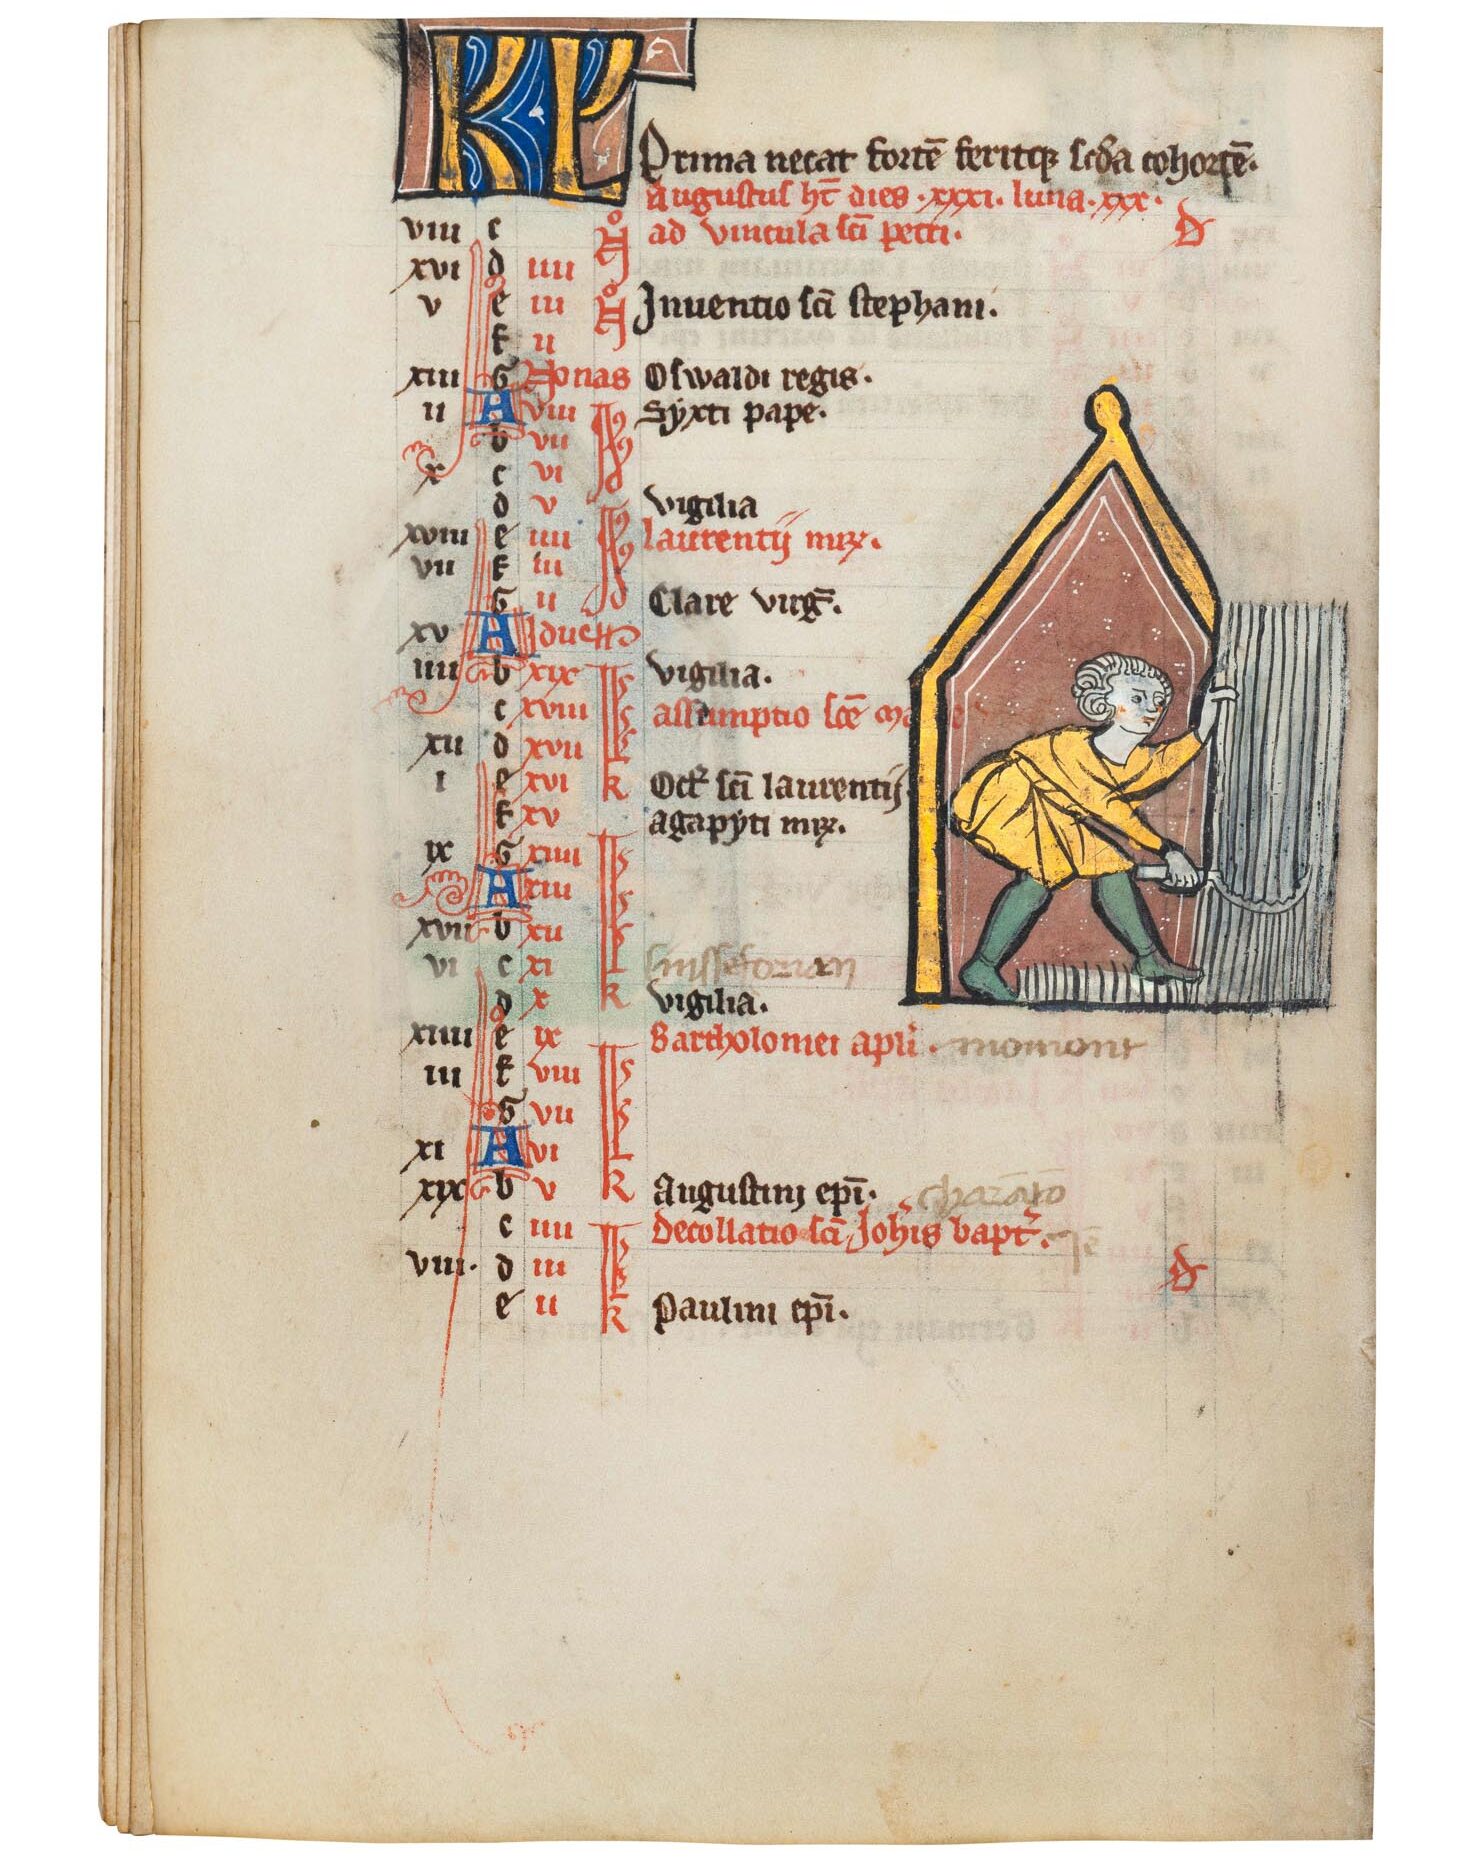 KL
Prima necat fortē feritq; scd̄a cohortē.
Augustus ht̄ dies .xxxi. luna .xxx.
viii c ad vincula sc̄i petri. D
xvi d iiii N̊
v e iii N̊ Inuentio sc̄i stephani.
f ii
xiii G Nonas Oswaldi regis.
ii A viii Idus Syxti pape.
b vii
x c vi
d v vigilia
xviii e iiii Idus laurentij mr̄.
vii f iii
G ii Clare virḡ.
xv A Idus
iiii b xix kl vigilia.
c xviii assumptio sc̄e
xii d xvii
i e xvi k Oct̄ sc̄i laurentij
f xv agapyti mr̄.
ix G xiiii kl
A xiii
xvii b xii
vi c xi
d x k vigilia.
xiiii e ix kl Bartholomei apl̄i.
iii f viii
G vii
xi A vi
xix b v k Augustini ep̄i.
c iiii kl decollatio sc̄i Joh̄is bapt̄.
viii. d iii D
e ii k Paulini ep̄i.